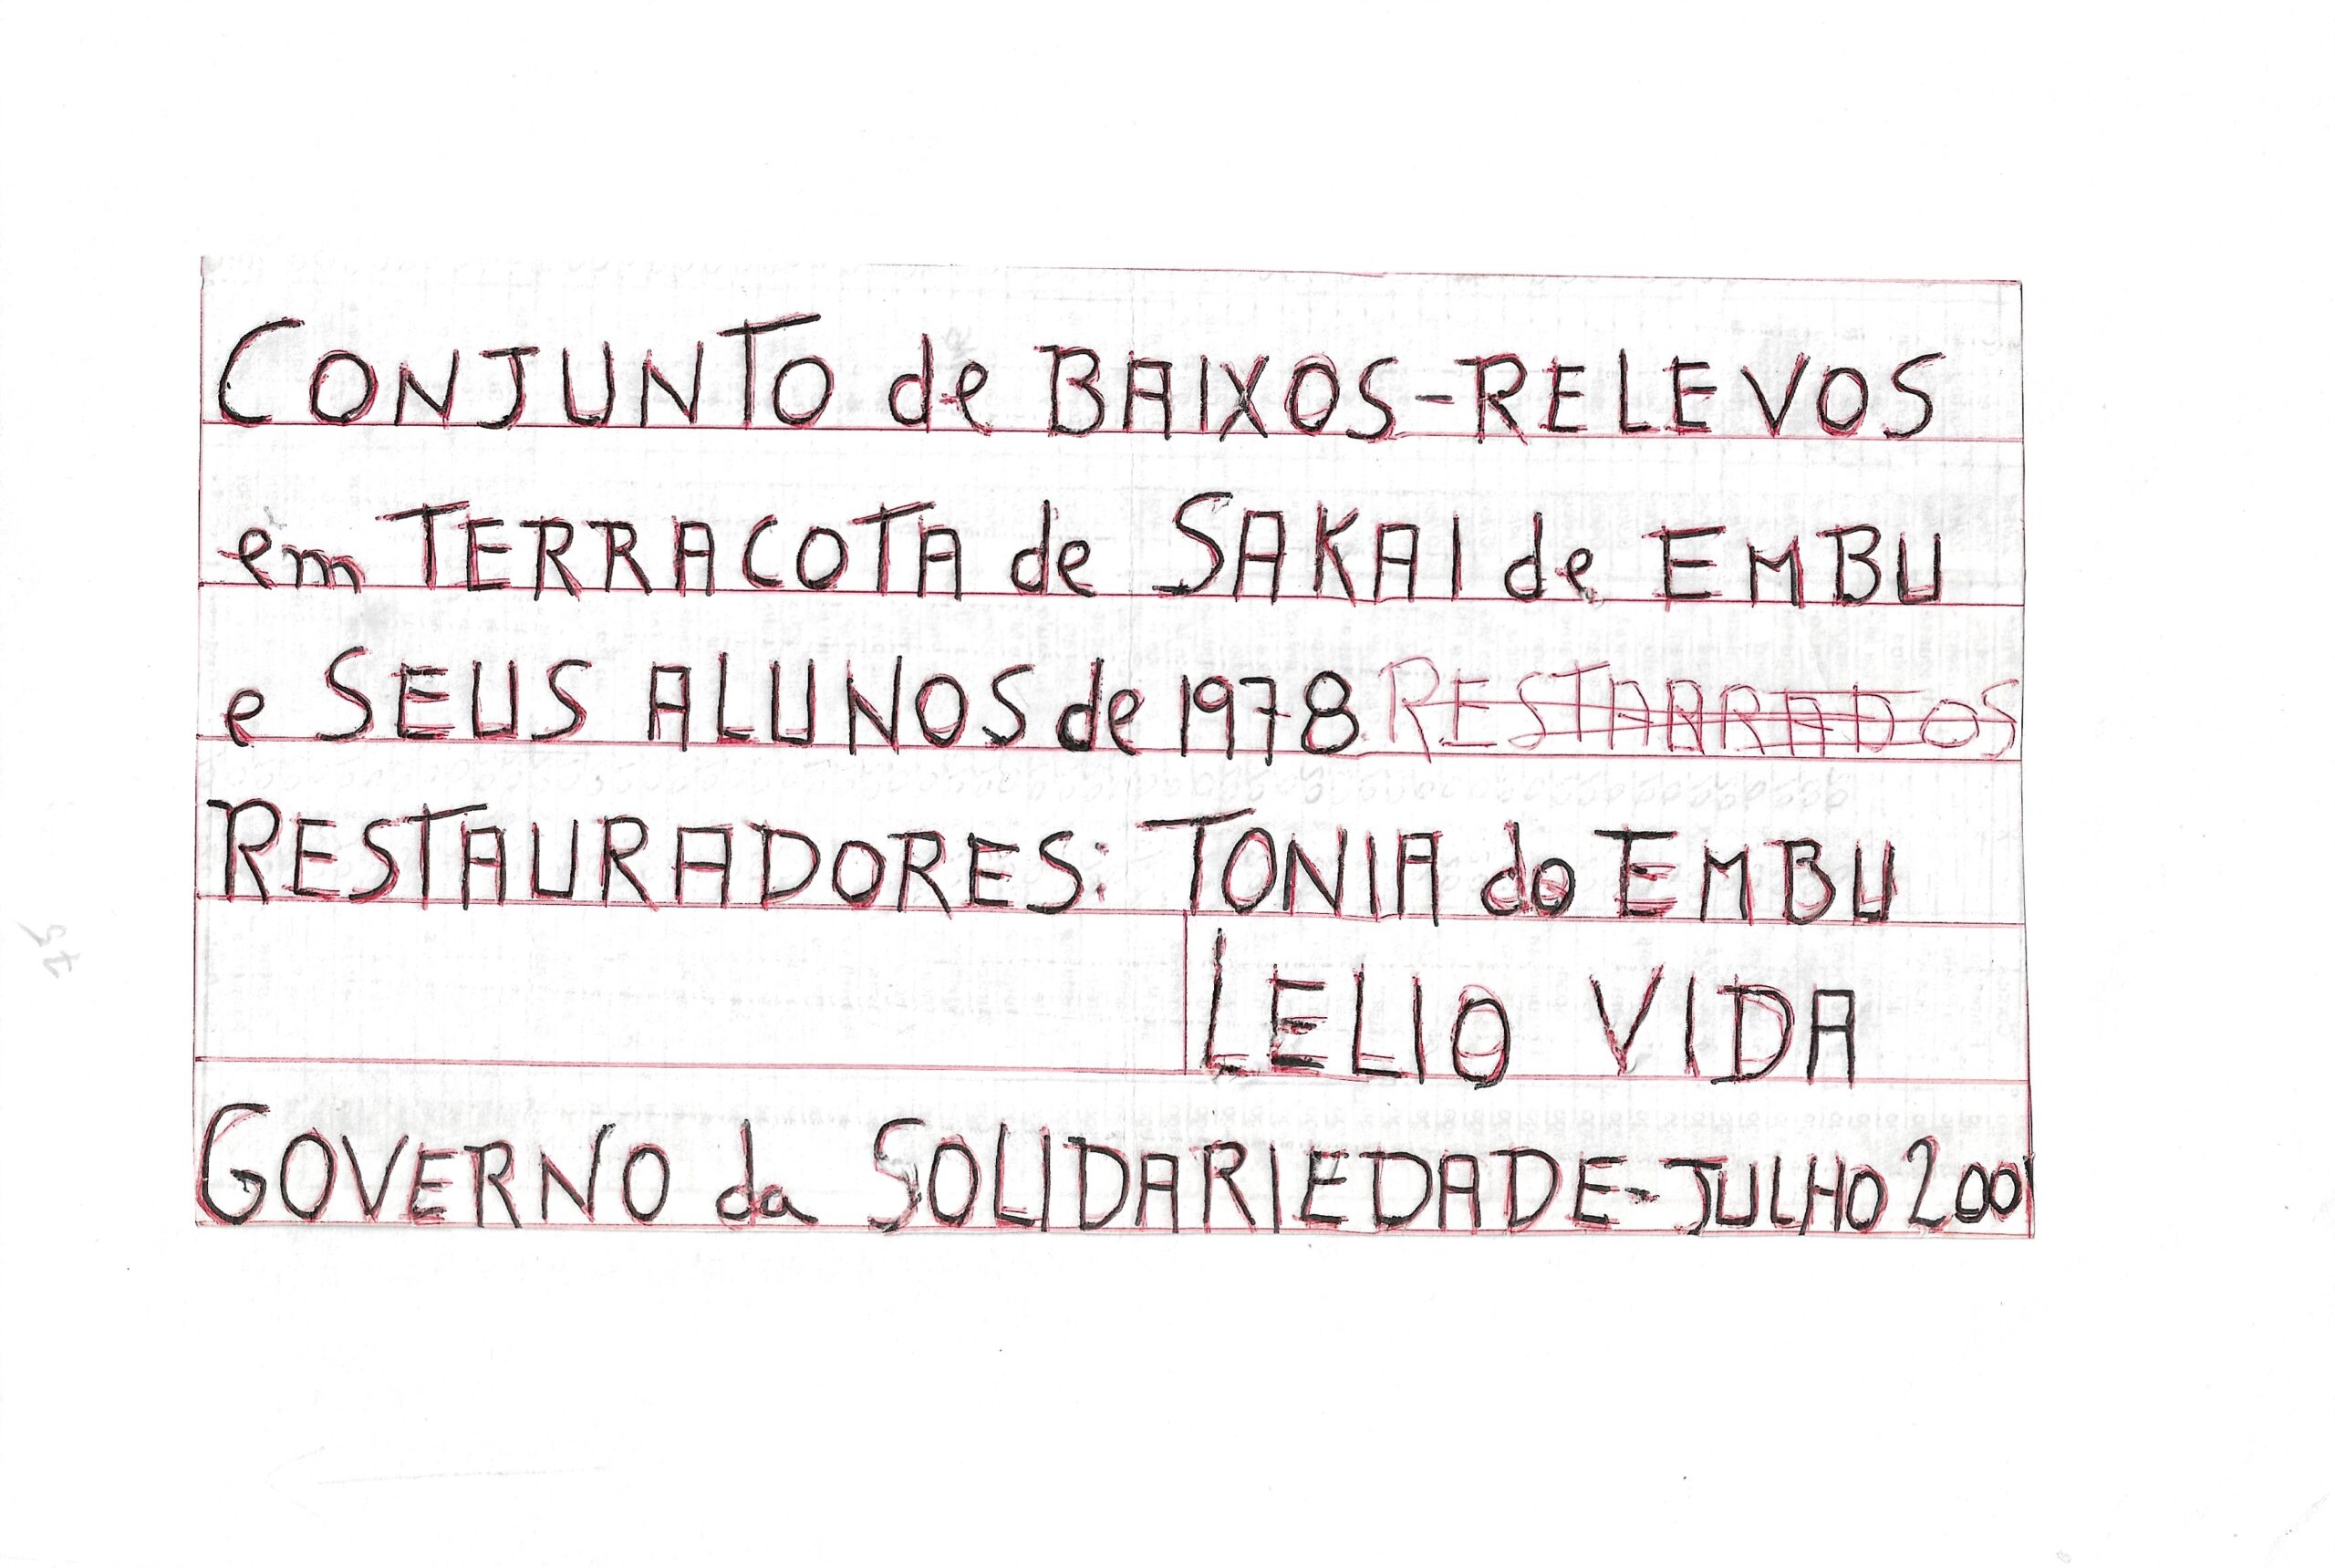 CONJUNTO de BAIXOS-RELEVOS
em TERRACOTA de SAKAI de EMBU
e SEUS ALUNOS de 1978. RESTARRADOS
RESTAURADORES: TONIA do EMBU
LELIO VIDA
GOVERNO da SOLIDARIEDADE-JULHO 2001
75